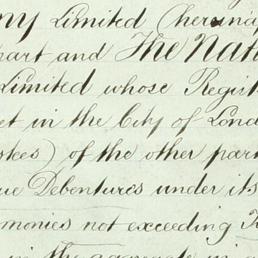 ny Limited (herein
part and The Nat
Limited whose Regist
et in the City of Lond
stees) of the other par
ue Debentures under its
monies not exceeding
in the aggregate in